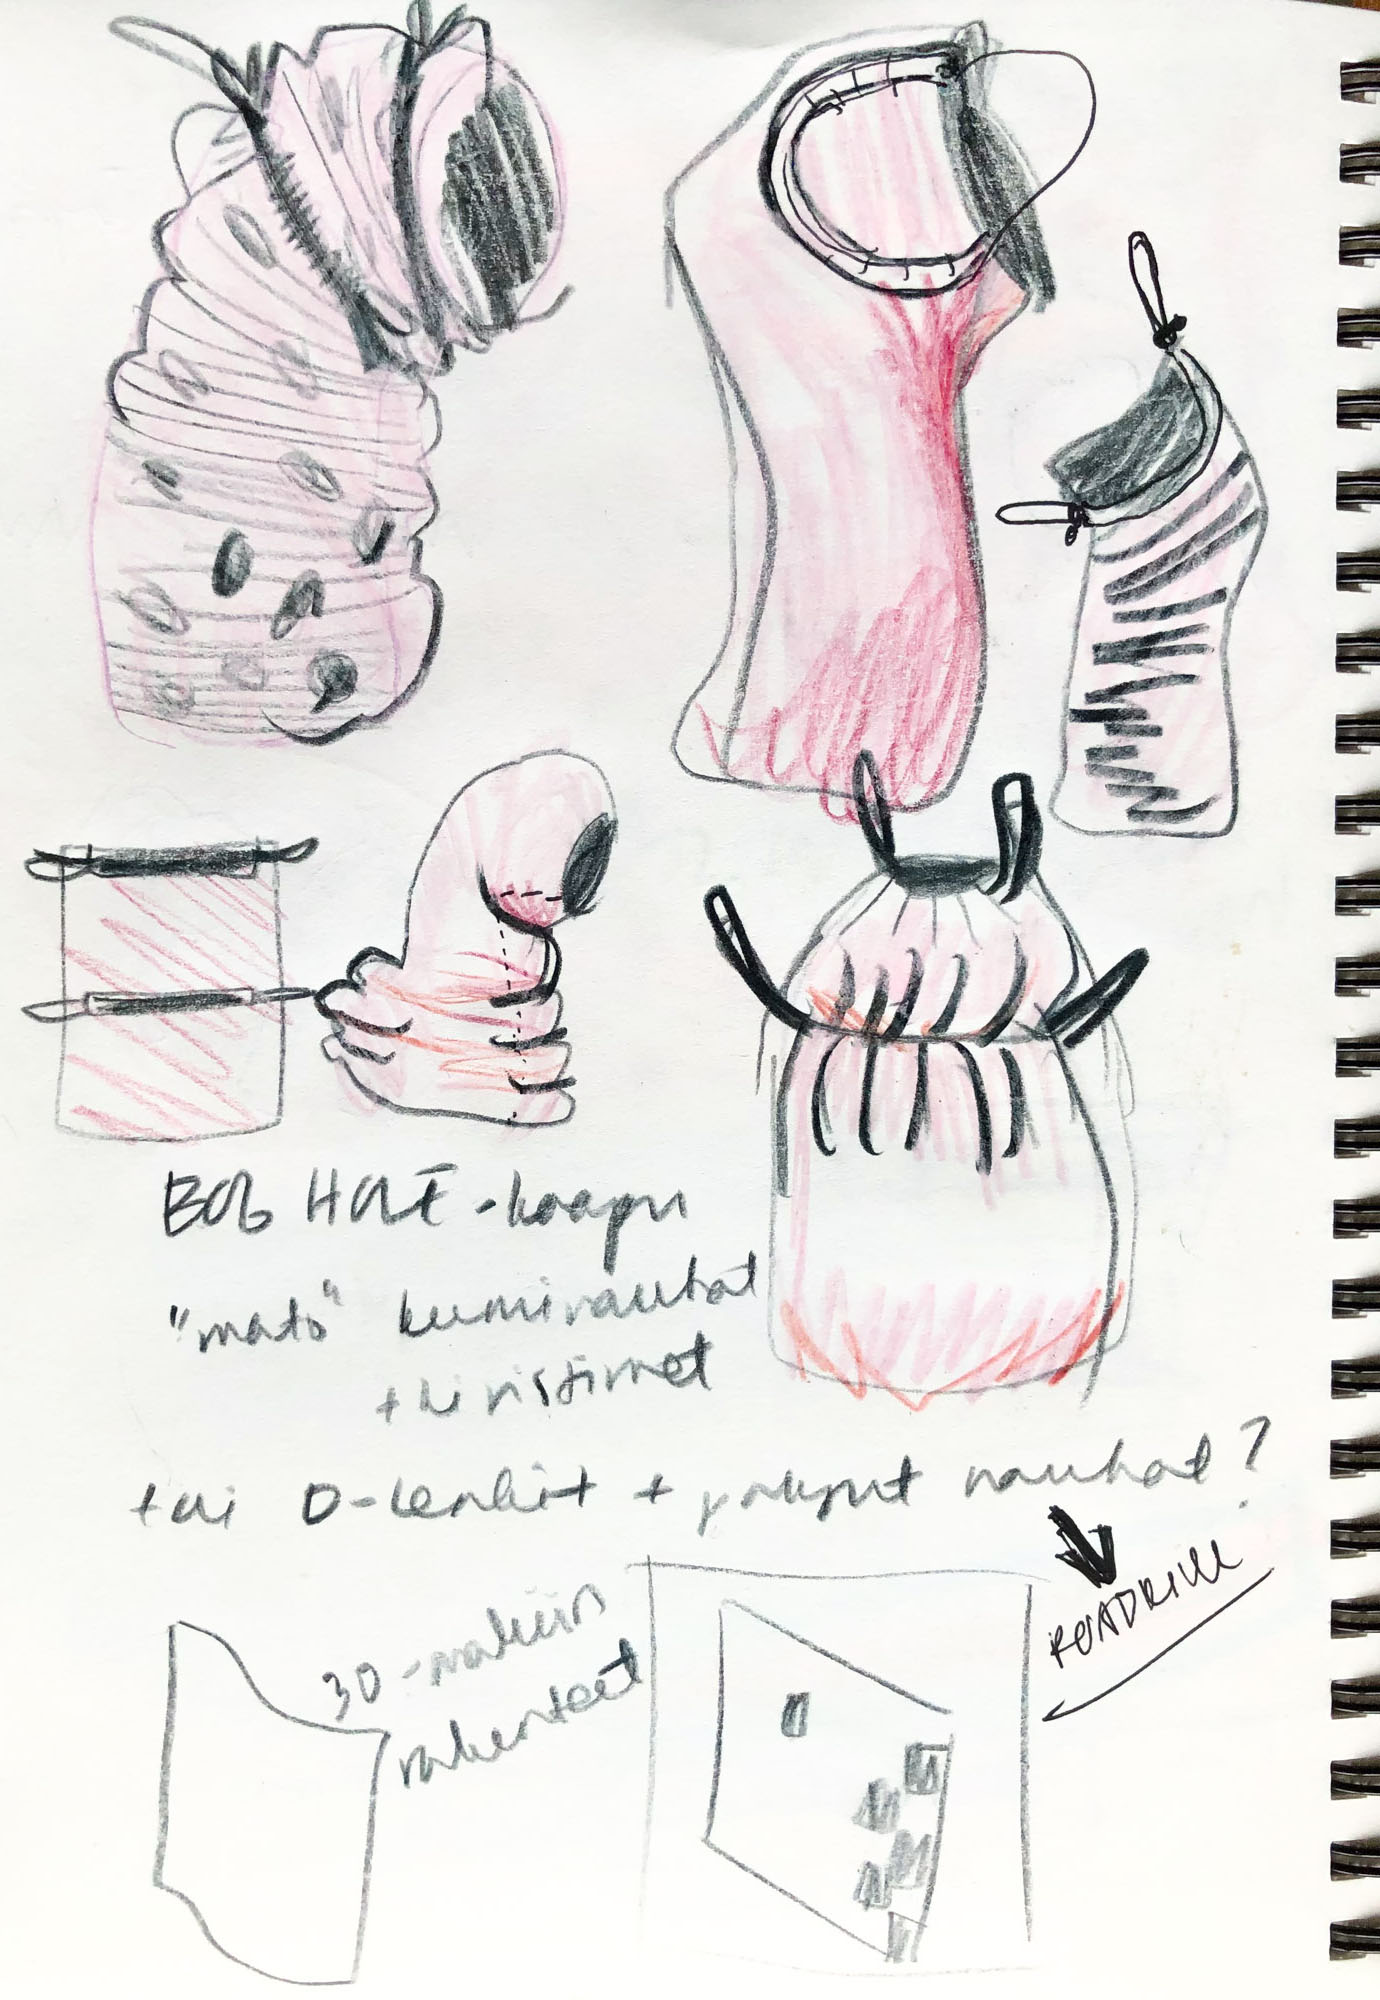 BOB HAT -kaapu
"mato" kuminauhat
+ kiristimet
tai D-lenkit + paksut nauhat?
3D-mallin
rakenteet